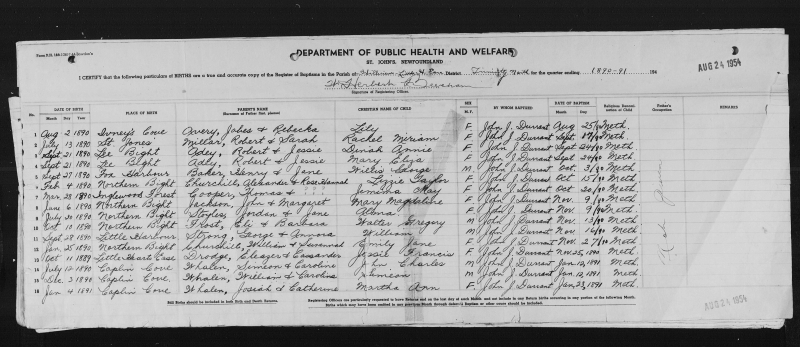 DEPARTMENT OF PUBLIC HEALTH AND WELFARE
ST. JOHN'S, NEWFOUNDLAND
AUG 24 1954
I CERTIFY that the following particulars of BIRTHS are a true and accurate copy of the Register of Baptisms in the Parish of District Trinity North for the quarter ending 1890-91 194
Signature of Registering Officer.
DATE OF BIRTH PLACE OF BIRTH PARENT'S NAME CHRISTIAN NAME OF CHILD SEX BY WHOM BAPTIZED DATE OF BAPTISM Religious Denomination of Child Father's Occupation REMARKS
Month Day Year (Surname of Father first, please) M. F. Month Day Year
1 Aug 2 1890 Ivney's Cove Avery, Jabez & Rebecka Lily F John J. Durrant Aug 25/90 Meth.
2 July 13 1890 St Jones Millar, Robert & Sarah Rachel Miriam F. John J. Durrant Sept 17/90 Meth.
3 Sept 21 1890 Lee Bight Adey, Robert & Jessie Dinah Annie F. John J. Durrant Sept 24/90 Meth.
4 Sept 21 1890 Lee Bight Adey, Robert & Jessie Mary Eliza F John J. Durrant Sept 24/90 Meth.
5 Sept 27 1890 Fox Harbour Baker, Henry & Jane Willis George M John J. Durrant Oct 3/90 Meth.
6 Feb 4 1890 Northern Bight Churchill, Alexander & Rose Hannah Lizzie Taylor F John J. Durrant Oct 17/90 Meth.
7 Mar 28 1890 Inglewood Forest Cooper, Thomas & Jemima May F. John J. Durrant Oct 20/90 Meth.
8 June 6 1890 Northern Bight Jackson, John & Margaret Mary Magdalene F John J. Durrant Nov. 9/90 Meth.
9 July 20 1890 Northern Bight Stoyles, Jordan & Jane F John J. Durrant Nov 9/90 Meth.
10 Oct 10 1890 Northern Bight Frost, Eli & Barbara Walter Gregory M John J. Durrant Nov 23/90 Meth.
11 Sept 28 1890 Little Harbour Strong, George & Annora William M John J. Durrant Nov 16/90 Meth.
12 Jan 25 1890 Northern Bight Churchill, William & Susannah Emily Jane F John J. Durrant Nov 27/90 Meth.
13 Oct 11 1889 Little Hearts Ease Drodge, Eleazer & Cassander Jessie Francis F John J. Durrant Nov 25, 1890 Meth.
July 12 1890 Caplin Cove Whalen, Simeon & Caroline John Charles M John J. Durrant Jan 12, 1891 Meth.
15 Dec 3 1890 Caplin Cove Whalen, William & Caroline Simeon M John J. Durrant Jan, 12, 1891 Meth.
16 Jan 4 1891 Caplin Cove Whalen, Josiah & Catherine Martha Ann F John J. Durrant Jan 23, 1891 Meth.
Still Births should be included in both Birth and Death Returns.
AUG 24 1954